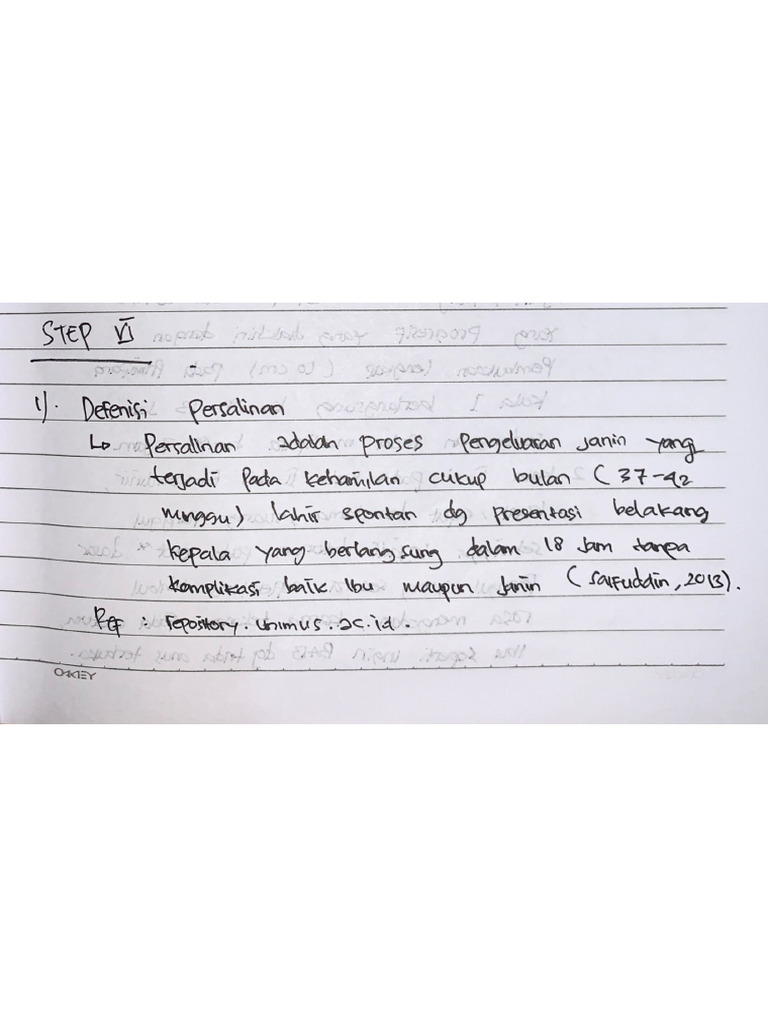 STEP VI
1). Defenisi Persalinan
↳ Persalinan adalah proses pengeluaran janin yang
terjadi pada kehamilan cukup bulan (37-42
minggu) lahir spontan dg presentasi belakang
kepala yang berlangsung dalam 18 jam tanpa
komplikasi baik ibu maupun janin (Saifuddin, 2013).
Ref : repository.unimus.ac.id.
OAKLEY